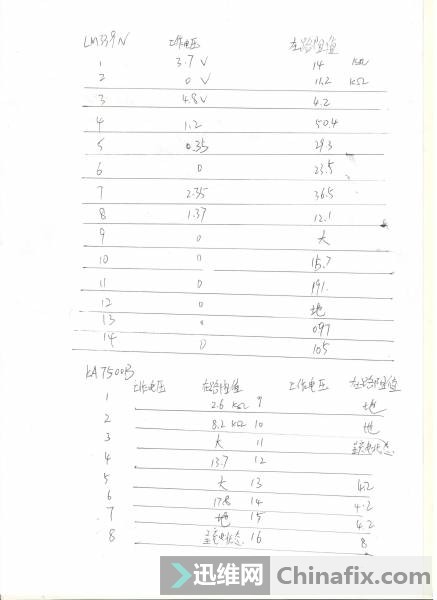 LM339N 工作电压 在路阻值
1 3.7 V 14 KΩ
2 0 V 11.2 KΩ
3 4.8V 4.2
4 1.2 50.4
5 0.35 29.3
6 0 23.5
7 2.35 36.5
8 1.37 12.1
9 0 大
10 0 15.7
11 0 191.
12 0 地
13 0 097
14 0 105
KA7500B 工作电压 在路阻值 工作电压 在路阻值
1 2.6 KΩ 9 地
2 8.2 KΩ 10 地
3 大 11 充电状态
4 13.7 12
5 大 13 4.2
6 17.8 14 4.2
7 地 15 4.2
8 充电状态 16 8
迅维网 Chinafix.com